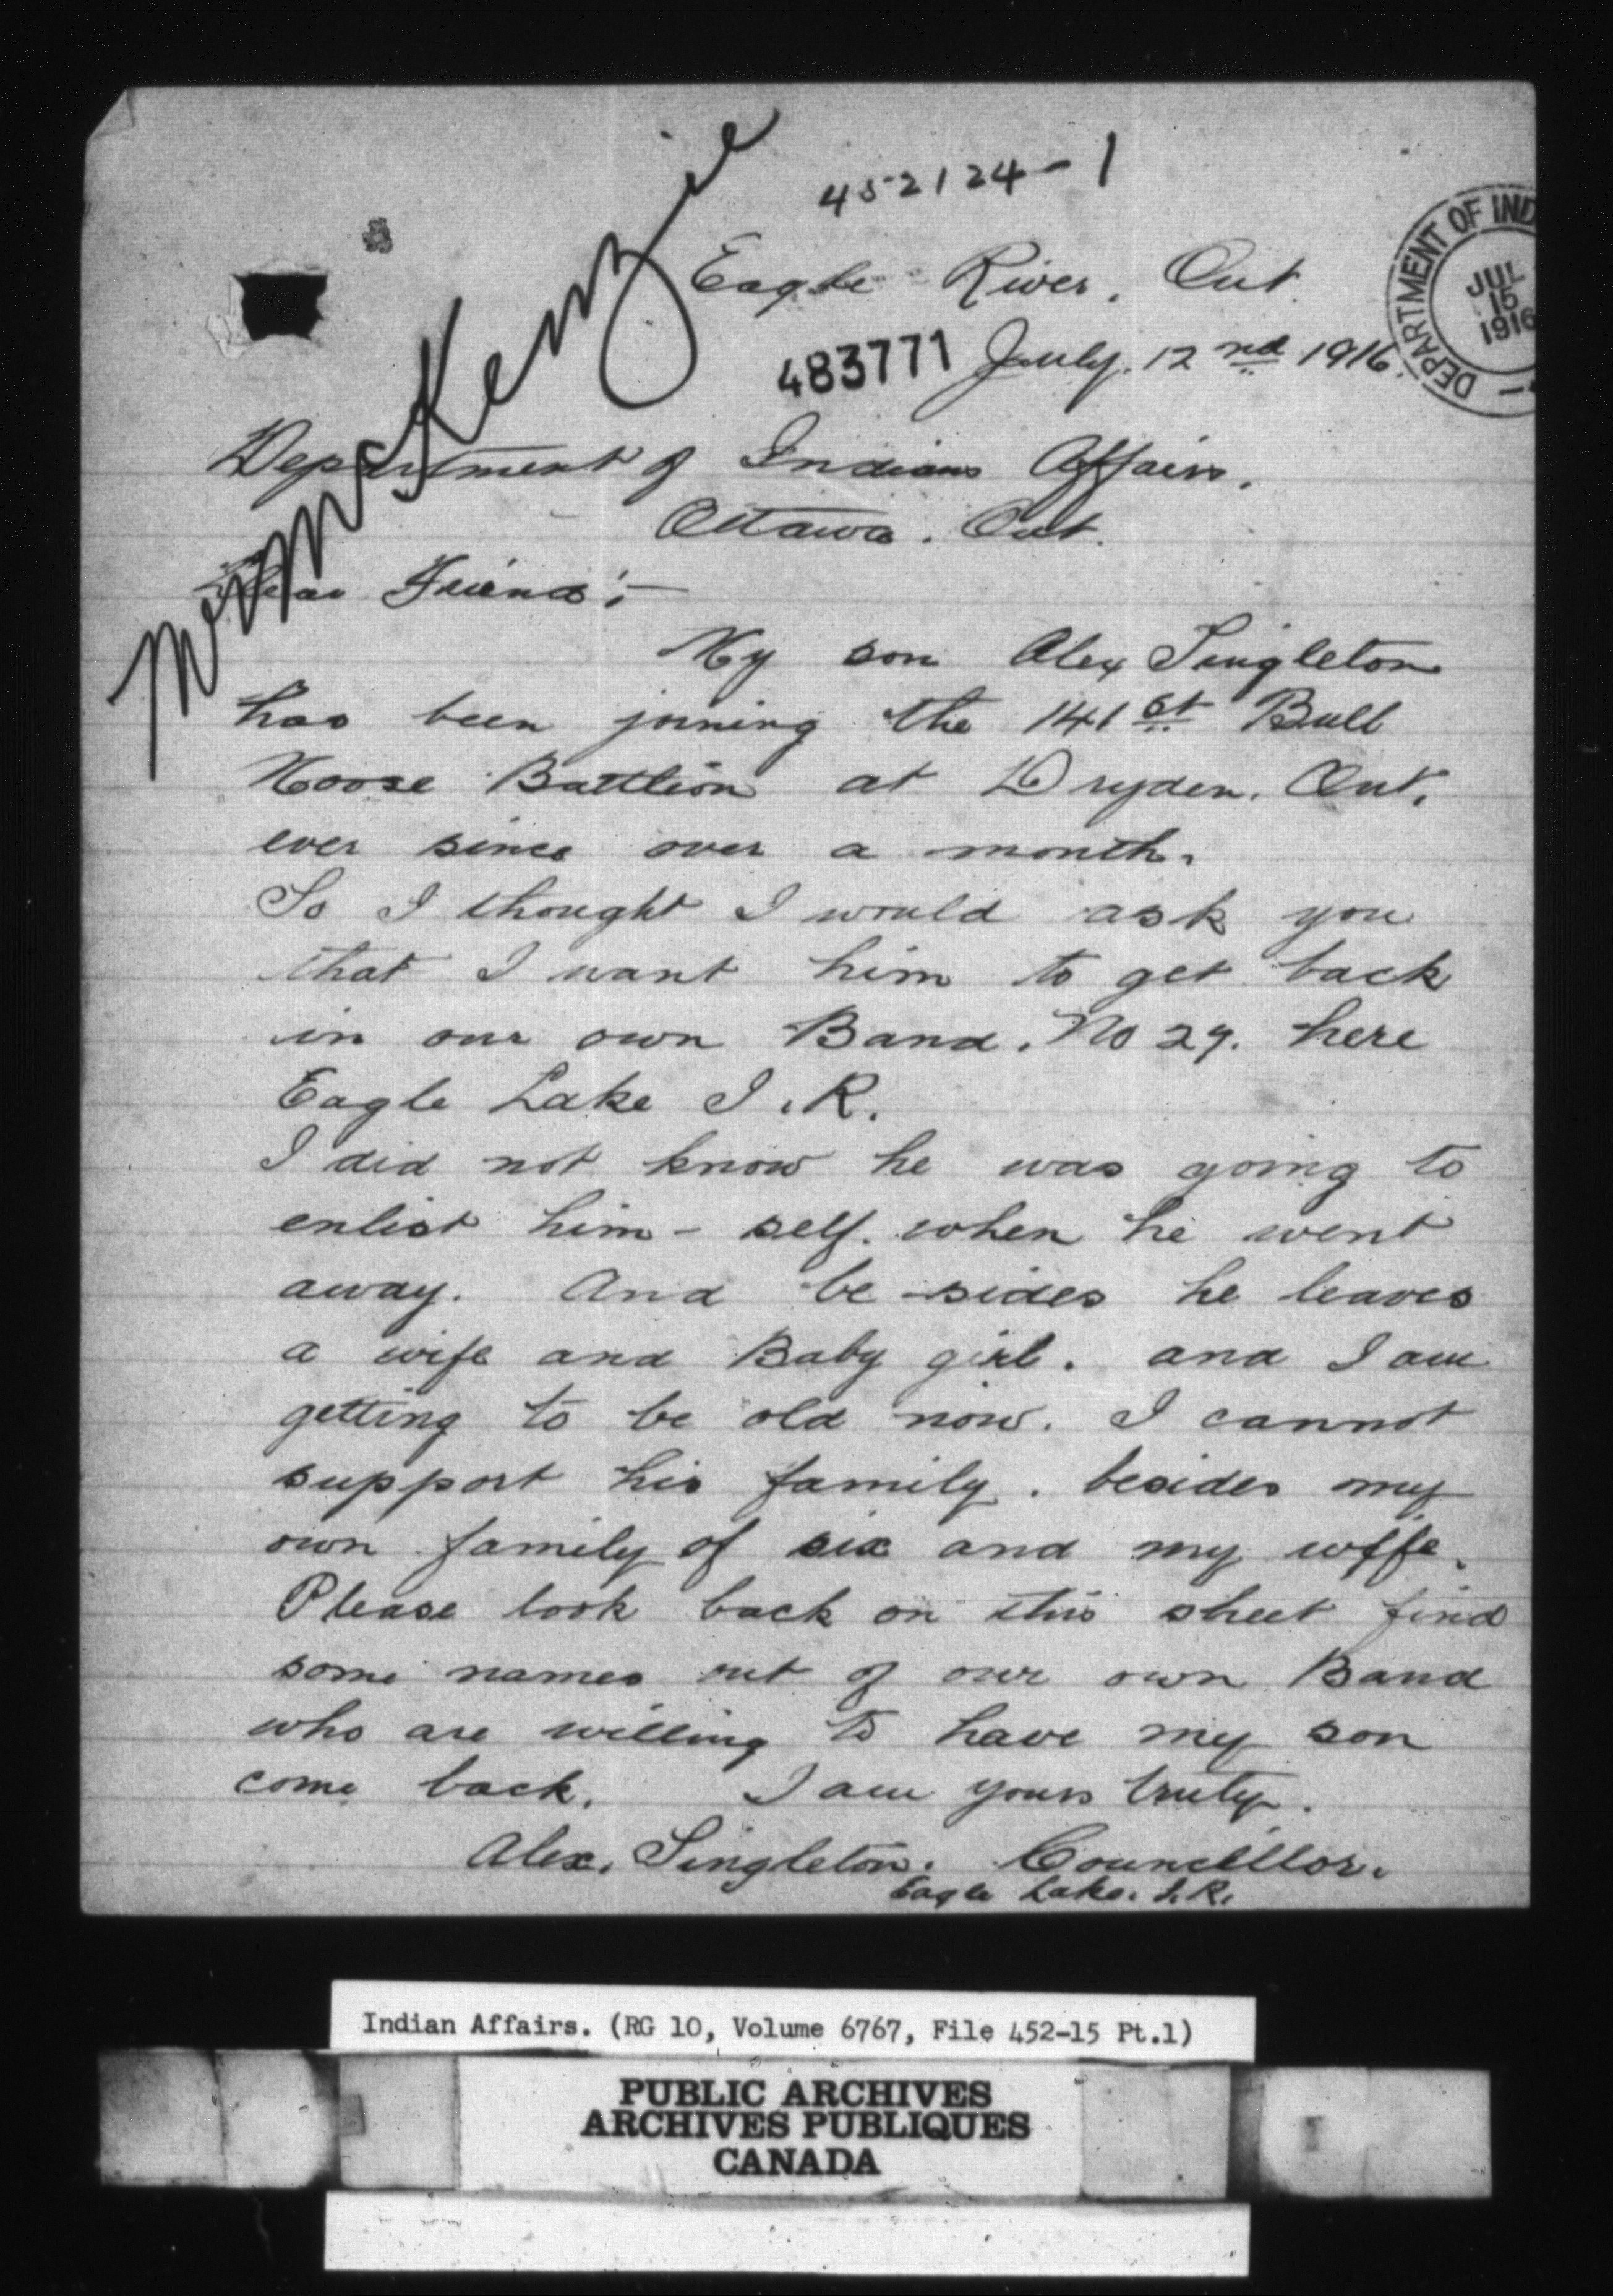 452124-1
Eagle River, Ont.
483771 July. 12 nd 1916.
DEPARTMENT OF IND
JUL
15
1916
Mr McKenzie
Department of Indians Affairs.
Ottawa. Ont.
Dear Friend:-
My son Alex Singleton
has been joining the 141 st Bull
Moose Battlion at Dryden. Ont.
ever since over a month.
So I thought I would ask you
that I want him to get back
in our own Band. No 27. here
Eagle Lake I.R.
I did not know he was going to
enlist him-self. when he went
away. And be-sides he leaves
a wife and Baby girl. and I am
getting to be old now. I cannot
support his family. besides my
own family of six and my wiffe.
Please look back on this sheet find
some names out of our own Band
who are willing to have my son
come back. I am yours truly.
Alex. Singleton. Councillor.
Eagle Lake. I.R.
Indian Affairs. (RG 10, Volume 6767, File 452-15 Pt.1)
PUBLIC ARCHIVES
ARCHIVES PUBLIQUES
CANADA